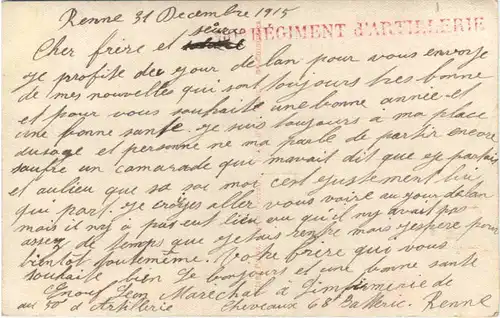 Renne 31 Decembre 1915
RÉGIMENT d'ARTILLERIE
Cher frère et
je profite du jour de lan pour vous envoye
de mes nouvelles qui sont toujours tres bonne
et pour vous souhaite une bonne année et
une bonne sante. je suis toujours a ma place
dusage et personne ne ma parle de partir encore
saufre un camarade qui mavait dit que je partais
et aulieu que sa soi moi cest justement lui
qui part. je croyes aller vous voire au jour de lan
mais il naj a pas eut lieu vu qu'il my avait pas
assez de temps que jetais rentre mais jespere pour
bientot toutememe. Votre frère qui vous
souhaite bien le bonjours et une bonne sante
Enouf Leon Marechal à Linfirmerie de
au 50e d Artillerie Cheveaux 68e Batterie. Renne